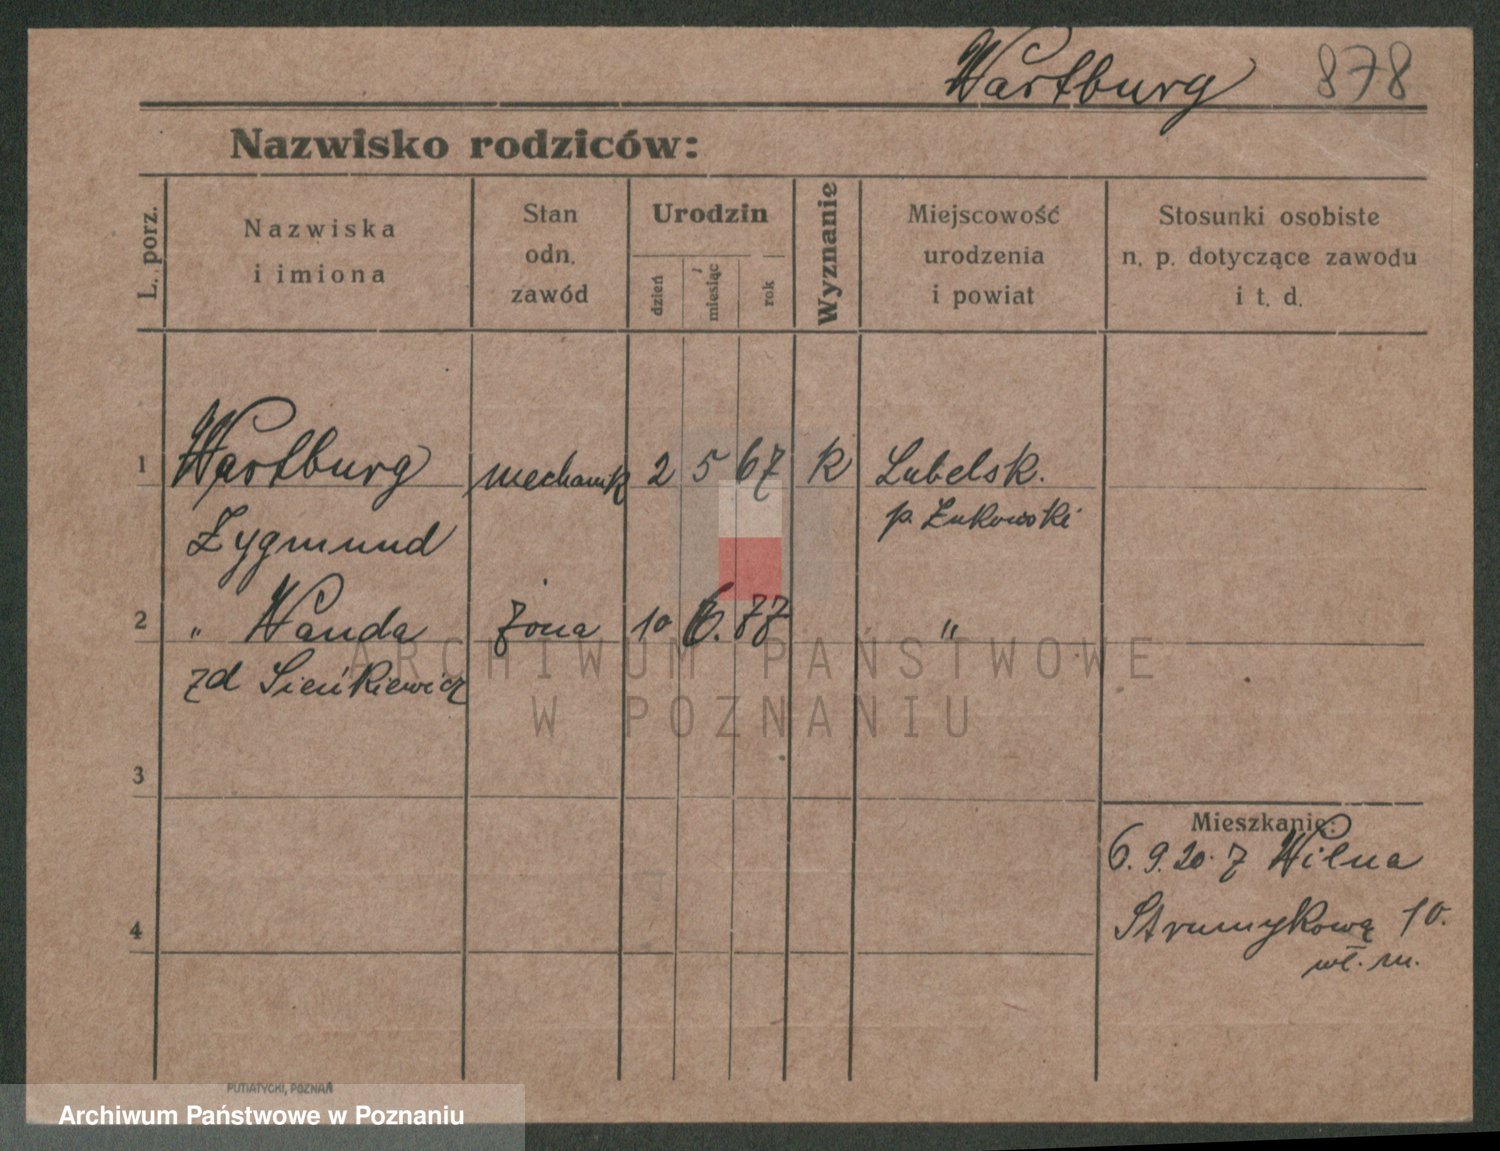 Wartburg 878
Nazwisko rodziców:
L. porz.
Nazwiska
i imiona
Stan
odn.
zawód
Urodzin
dzień
miesiąc
rok
Wyznanie
Miejscowość
urodzenia
i powiat
Stosunki osobiste
n. p. dotyczące zawodu
i t. d.
1 Wartburg mechanik 2 5 67 k Lubelsk.
p. Łukowski
Zygmund
2 " Wanda żona 10 6. 77 "
zd Sieńkiewicz
ARCHIWUM PAŃSTWOWE
W POZNANIU
3
Mieszkanie:
6.9.20. z Wilna
4
Strumykowa 10.
wł. m.
PUTIATYCKI, POZNAŃ
Archiwum Państwowe w Poznaniu